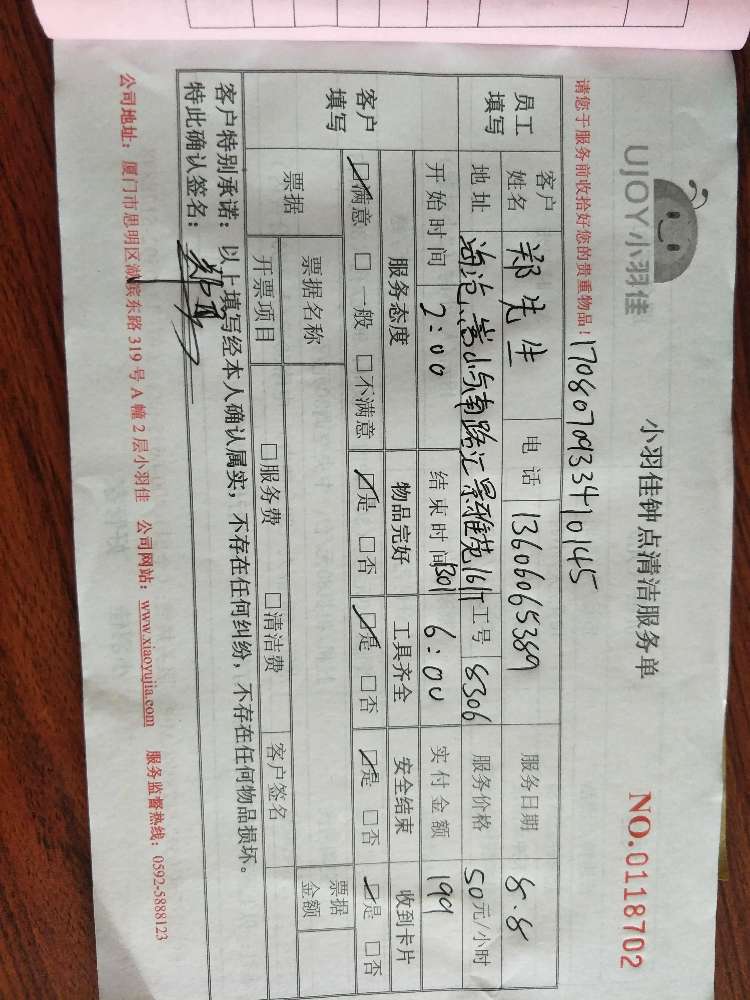 UJOY小羽佳
小羽佳钟点清洁服务单
NO.0118702
请您于服务前收拾好您的贵重物品！
1708070933410145
员工填写
客户姓名 郑先生 电话 13606065389 服务日期 8.8
地址 海沧嵩屿南路汇景雅苑16# 1301 工号 8306 服务价格 50元/小时
开始时间 2:00 结束时间 6:00 实付金额 199
客户填写
服务态度 物品完好 工具齐全 安全结束 收到卡片
☑满意 □一般 □不满意 ☑是 □否 ☑是 □否 ☑是 □否 ☑是 □否
票据 票据名称 票据金额
开票项目 □服务费 □清洁费 客户签名
客户特别承诺：以上填写经本人确认属实，不存在任何纠纷，不存在任何物品损坏。
特此确认签名：
公司地址：厦门市思明区湖滨东路319号A幢2层小羽佳 公司网站：www.xiaoyujia.com 服务监督热线：0592-5888123